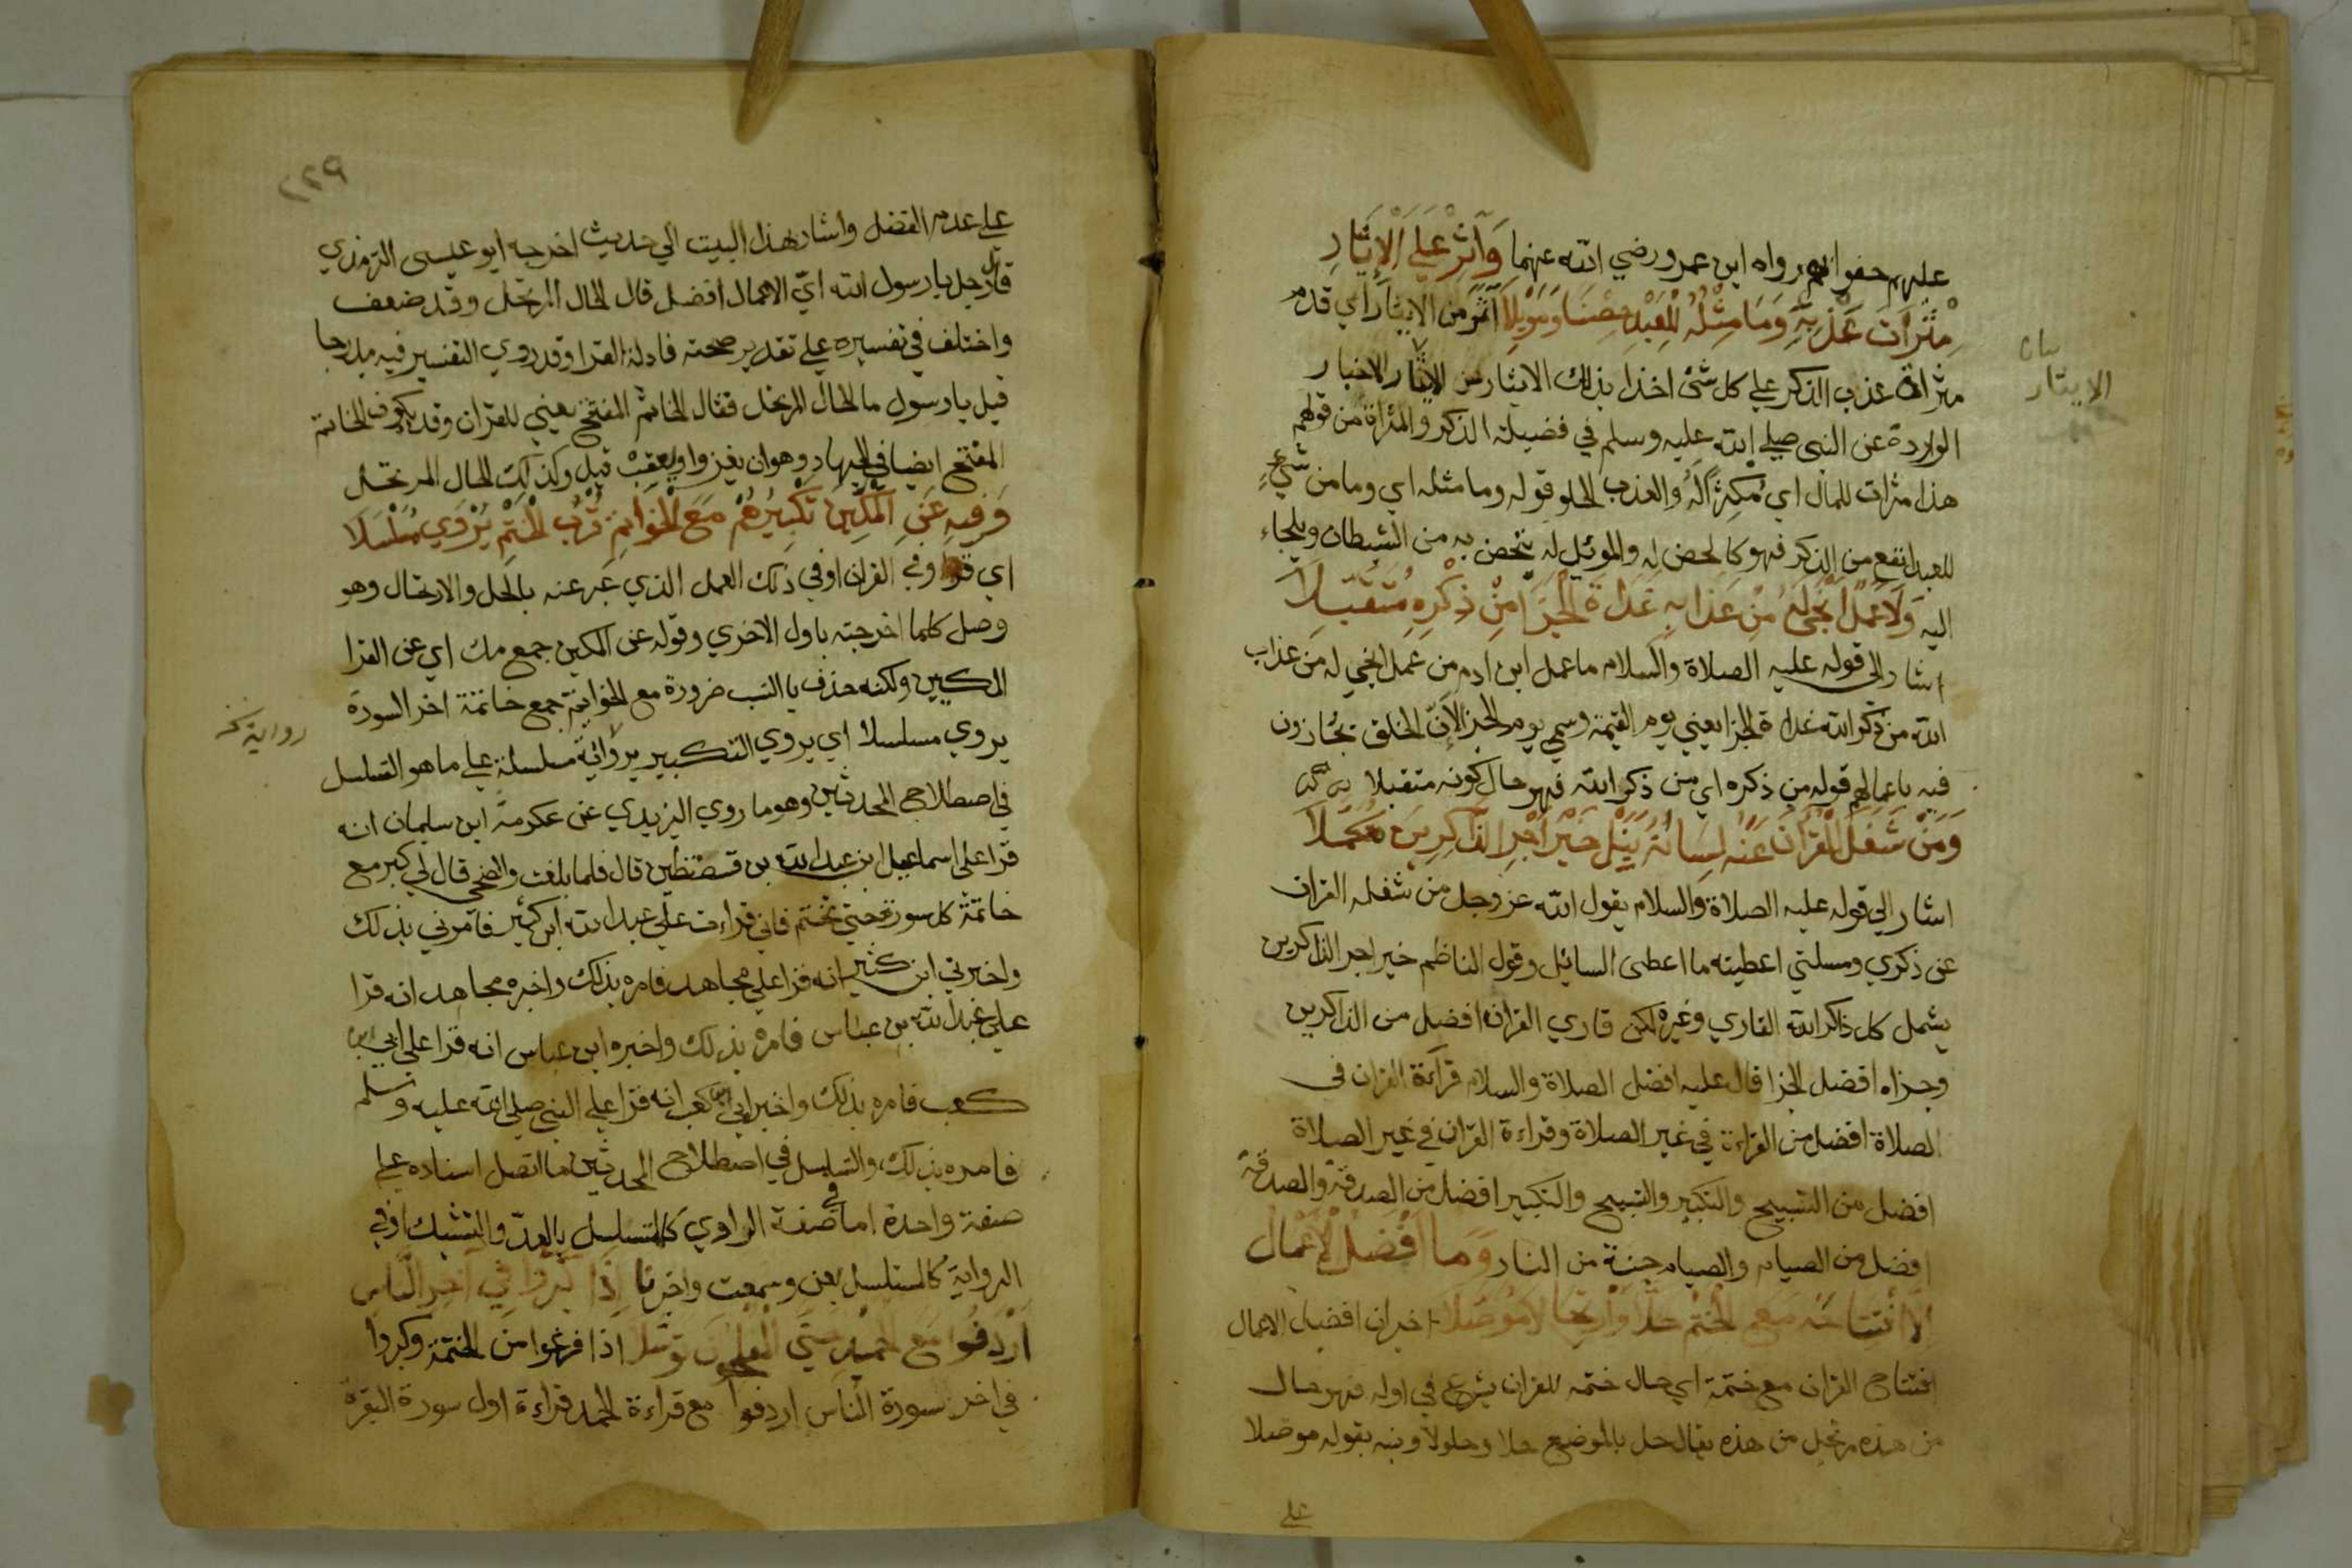 عليهم حفوا بهم رواه ابن عمر ورضي الله عنهما وَآثِرْ عَلَى الْآثَارِ
مَثْرَاتَ عَذْبِهِ وَمَا مِثْلُهُ لِلْعَبْدِ حِصْنًا وَمَوْئِلَا آثر من الايثار اي قدم
مثراة عذب الذكر علي كل شئ اخذا بذلك الايثار من الاثار الاخبار
الواردة عن النبي صلي الله عليه وسلم في فضيلة الذكر والمثراة من قولهم
هذا مثرات للمال اي مُكثرةٌ له والعذب الحلو قوله وما مثله اي وما من شيءٍ
للعبد انفع من الذكر فهو كالحصن له والموئيل له يتحصن به من الشيطان ويلجاء
اليه وَلَا عَمَلٌ أَنْجَى لَهُ مِنْ عَذَابِهِ غَدَاةَ الْجَزَا مِنْ ذِكْرِهِ مُتَقَبَّلَا
اشار الي قوله عليه الصلاة والسلام ما عمل ابن ادم من عمل انجي له من عذاب
الله من ذكر الله غداة الجزا يعني يوم القيمة وسمي يوم الجزا لان الخلق تجازون
فيه باعمالهم قوله من ذكره اي من ذكر الله فهو حال كونه متقبلا
وَمَنْ شَغَلَ الْقُرْآنُ عَنْهُ لِسَانَهُ يَنَلْ خَيْرَ أَجْرِ الذَّاكِرِينَ مُكَمَّلَا
اشار الي قوله عليه الصلاة والسلام يقول الله عز وجل من شغله القران
عن ذكري ومسلتي اعطيته ما اعطى السائيل وقول الناظم خير اجر الذاكرين
يشمل كل ذاكر الله القاري وغيره لكن قاري القران افضل من الذاكرين
وجزاه افضل الجزا قال عليه افضل الصلاة والسلام قراءة القران في
الصلاة افضل من القراءة في غير الصلاة وقراءة القران في غير الصلاة
افضل من التسبيح والتكبير والتسبيح والتكبير افضل من الصدقة والصدقة
افضل من الصيام والصيام جنة من النار وَمَا أَفْضَلُ الْأَعْمَالِ
إِلَّا افْتِتَاحَهُ مَعَ الْخَتْمِ حِلًّا وَارْتِحَالًا مُوَصَّلَا اخبر ان افضل الاعمال
افتتاح القران مع ختمة اي حال ختمه للقران يشرع في اوله فهو حال
من هذه مرتحل من هذه يقال حل بالموضع حلا وحلولا ونبه بقوله موصلا
علي
بيان
الايثار
٢٢٩
علي عدم الفصل واشار بهذا البيت الي حديث اخرجه ابو عيسى الترمذي
قال رجل يا رسول الله اي الاعمال افضل قال الحال المرتحل وقد ضعف
واختلف في تفسيره علي تقدير صحته فادلة القرا وقد روي التفسير فيه مدرجا
قيل يا رسول ما الحال المرتحل فقال الخاتم المفتتح يعني للقران وقد يكون الخاتم
المفتتح ايضا في الجهاد وهو ان يغزوا ويعقب قيل وكذلك الحال المرتحل
وَفِيهِ عَنِ الْمَكِّينَ تَكْبِيرُهُمْ مَعَ الْخَوَاتِمِ قُرْبَ الْخَتْمِ يُرْوَي مُسَلْسَلَا
اي قوله وفي القران اوفي ذلك العمل الذي عبر عنه بالحل والارتحال وهو
وصل كلما اخرجته باول الاخري وقوله عن المكين جمع مك اي عن القرا
المكيين ولكنه حذف يا النسب ضرورة مع الخواتيم جمع خاتمة اخر السورة
يروي مسلسلا اي يروي التكبير برواية مسلسلة علي ما هو التسلسل
في اصطلاح المحدثين وهو ما روي اليزيدي عن عكرمة ابن سليمان انه
قرا على اسماعيل ابن عبد الله بن قسطنطين قال فلما بلغت والضحى قال لي كبر مع
خاتمة كل سورة حتي تختم فاني قراءت علي عبد الله ابن كثير فامرني بذلك
واخبرني ابن كثير انه قرا علي مجاهد فامره بذلك واخبره مجاهد انه قرا
علي عبد الله بن عباس فامره بذلك واخبره ابن عباس انه قرا علي ابي ابن
كعب فامره بذلك واخبر ابي ابن كعب انه قرا علي النبي صلى الله عليه وسلم
فامره بذلك والتسلسل في اصطلاح المحدثين ما اتصل اسناده علي
صفة واحدة اما في صفة الراوي كالمتسلسل بالعد والتشبيك او في
الرواية كالمتسلسل بعن وسمعت واخبرنا إِذَا كَبَّرُوا فِي آخِرِ النَّاسِ
أَرْدَفُوا مَعَ الْحَمْدِ حَتَّى الْمُفْلِحُونَ تَوَسُّلَا اذا فرغوا من الختمة وكبروا
في اخر سورة الناس اردفوا مع قراءة الحمد قراءة اول سورة البقرة
رواية نخ